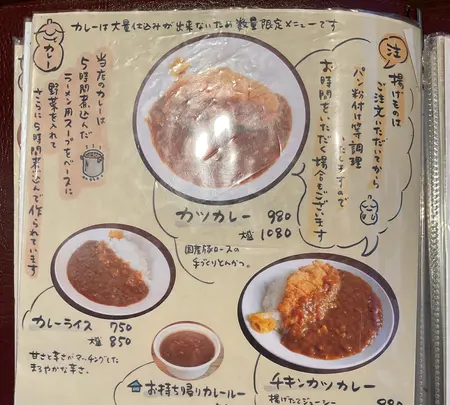 カレーは大量仕込みが出来ないため数量限定メニューです
カレー
当店のカレーは
5時間煮込んだ
ラーメン用スープをベースに
野菜を入れて
さらに5時間煮込んで作られています
注
揚げものは
ご注文いただいてから
パン粉付け等調理
いたしますので
お時間をいただく場合もございます
カツカレー 980
大盛 1080
国産豚ロースの
手づくりとんかつ。
カレーライス 750
大盛 850
甘さと辛さがマーチングした
まろやかな辛さ。
お持ち帰りカレールー
チキンカツカレー
揚げたてジューシー